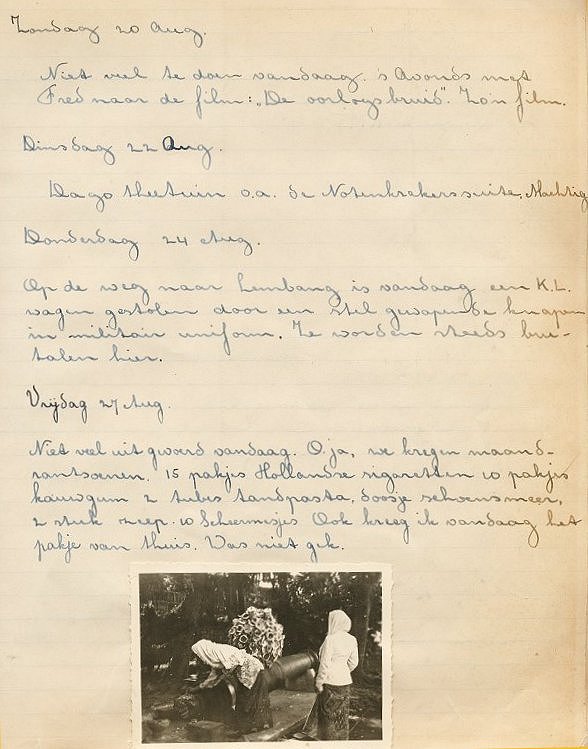 Zondag 20 Aug.
Niet veel te doen vandaag. 's Avonds met
Fred naar de film: „De oorlogsbruid". Zo'n film.
Dinsdag 22 Aug.
Dago theetuin o.a. de Notenkrakerssuite. Machtig
Donderdag 24 Aug.
Op de weg naar Lembang is vandaag een K.L.
wagen gestolen door een stel gewapende knapen
in militair uniform. Ze worden steeds bru-
talen hier.
Vrijdag 27 Aug.
Niet veel uit gevoerd vandaag. O ja, we kregen maand-
rantsoenen. 15 pakjes Hollandse sigaretten 10 pakjes
kauwgum 2 tubes tandpasta, doosje schoensmeer,
2 stuk zeep. 10 Scheermesjes Ook kreeg ik vandaag het
pakje van thuis. Was niet gek.